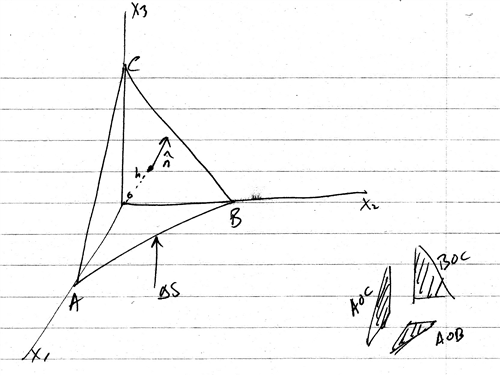 X3
C
n̂
h
o
B
X2
A
ΔS
X1
BOC
AOC
AOB